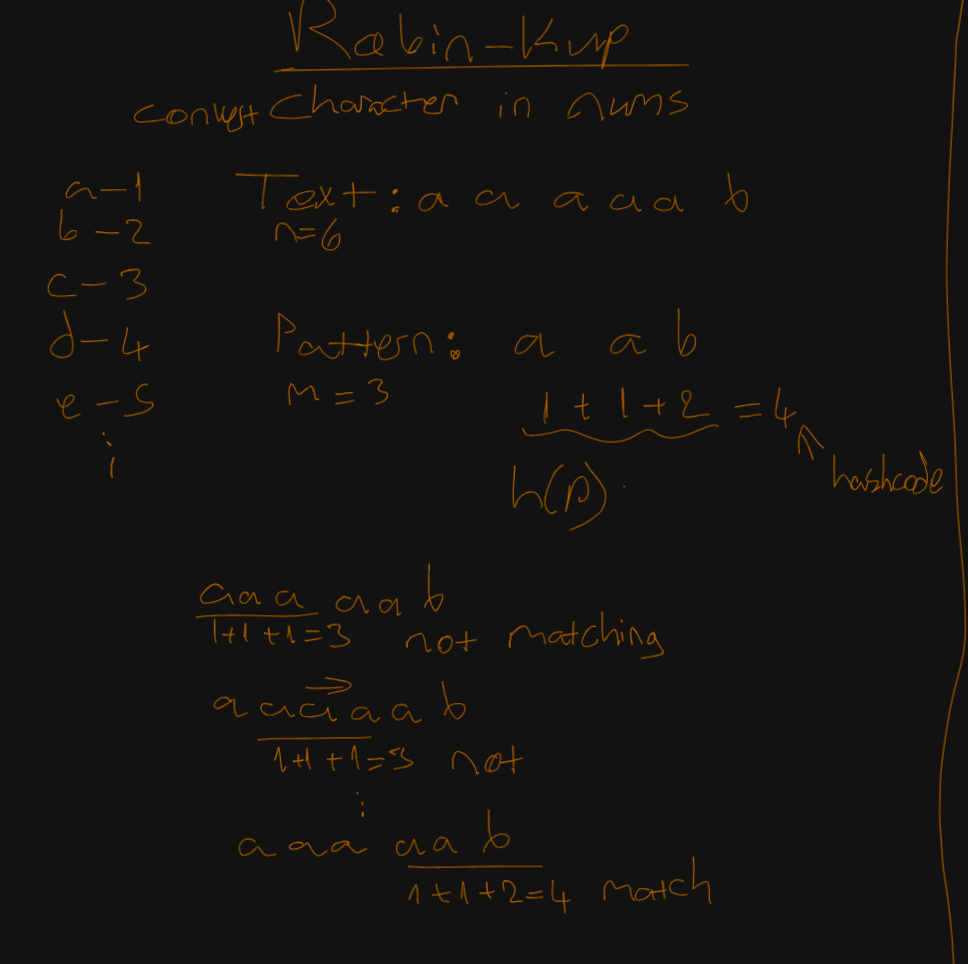 Rabin-Karp
convert Character in nums
a-1 Text: a a a a a b
b-2 n=6
c-3
d-4 Pattern: a a b
e-5 m=3 1+1+2=4
hashcode
h(p)
aaa aa b
1+1+1=3 not matching
a a a a a b
1+1+1=3 not
a a a a a b
1+1+2=4 match